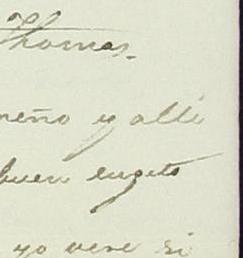 Thomas.
meño y alli
buen sugeto
yo vere si